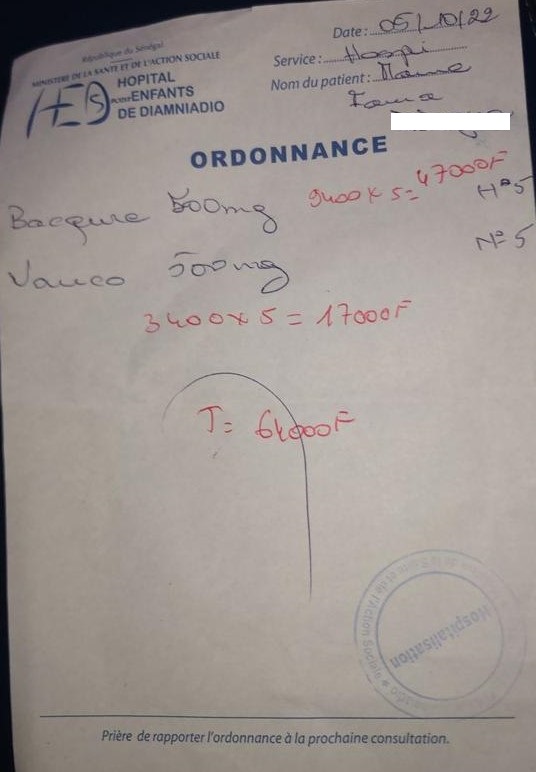 République du Sénégal
MINISTERE DE LA SANTE ET DE L'ACTION SOCIALE
HOPITAL
POUR ENFANTS
DE DIAMNIADIO
Date : 05/10/22
Service : Hospi
Nom du patient : Mame
ORDONNANCE
Bacqure 500mg 9400 x 5 = 47000F N=5
Vanco 500mg N=5
3400 x 5 = 17000F
T= 64000F
Hospitalisation
Prière de rapporter l'ordonnance à la prochaine consultation.